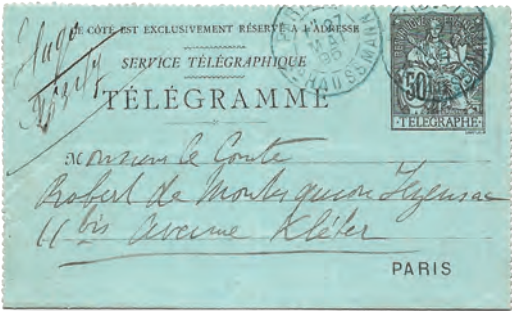 CE CÔTÉ EST EXCLUSIVEMENT RÉSERVÉ A L'ADRESSE
SERVICE TÉLÉGRAPHIQUE
TÉLÉGRAMME
50
TELEGRAPHE
HAUSSMANN
27
MAI
Monsieur le Comte
Robert de Montesquiou Fezensac
11 bis avenue Kléber
PARIS